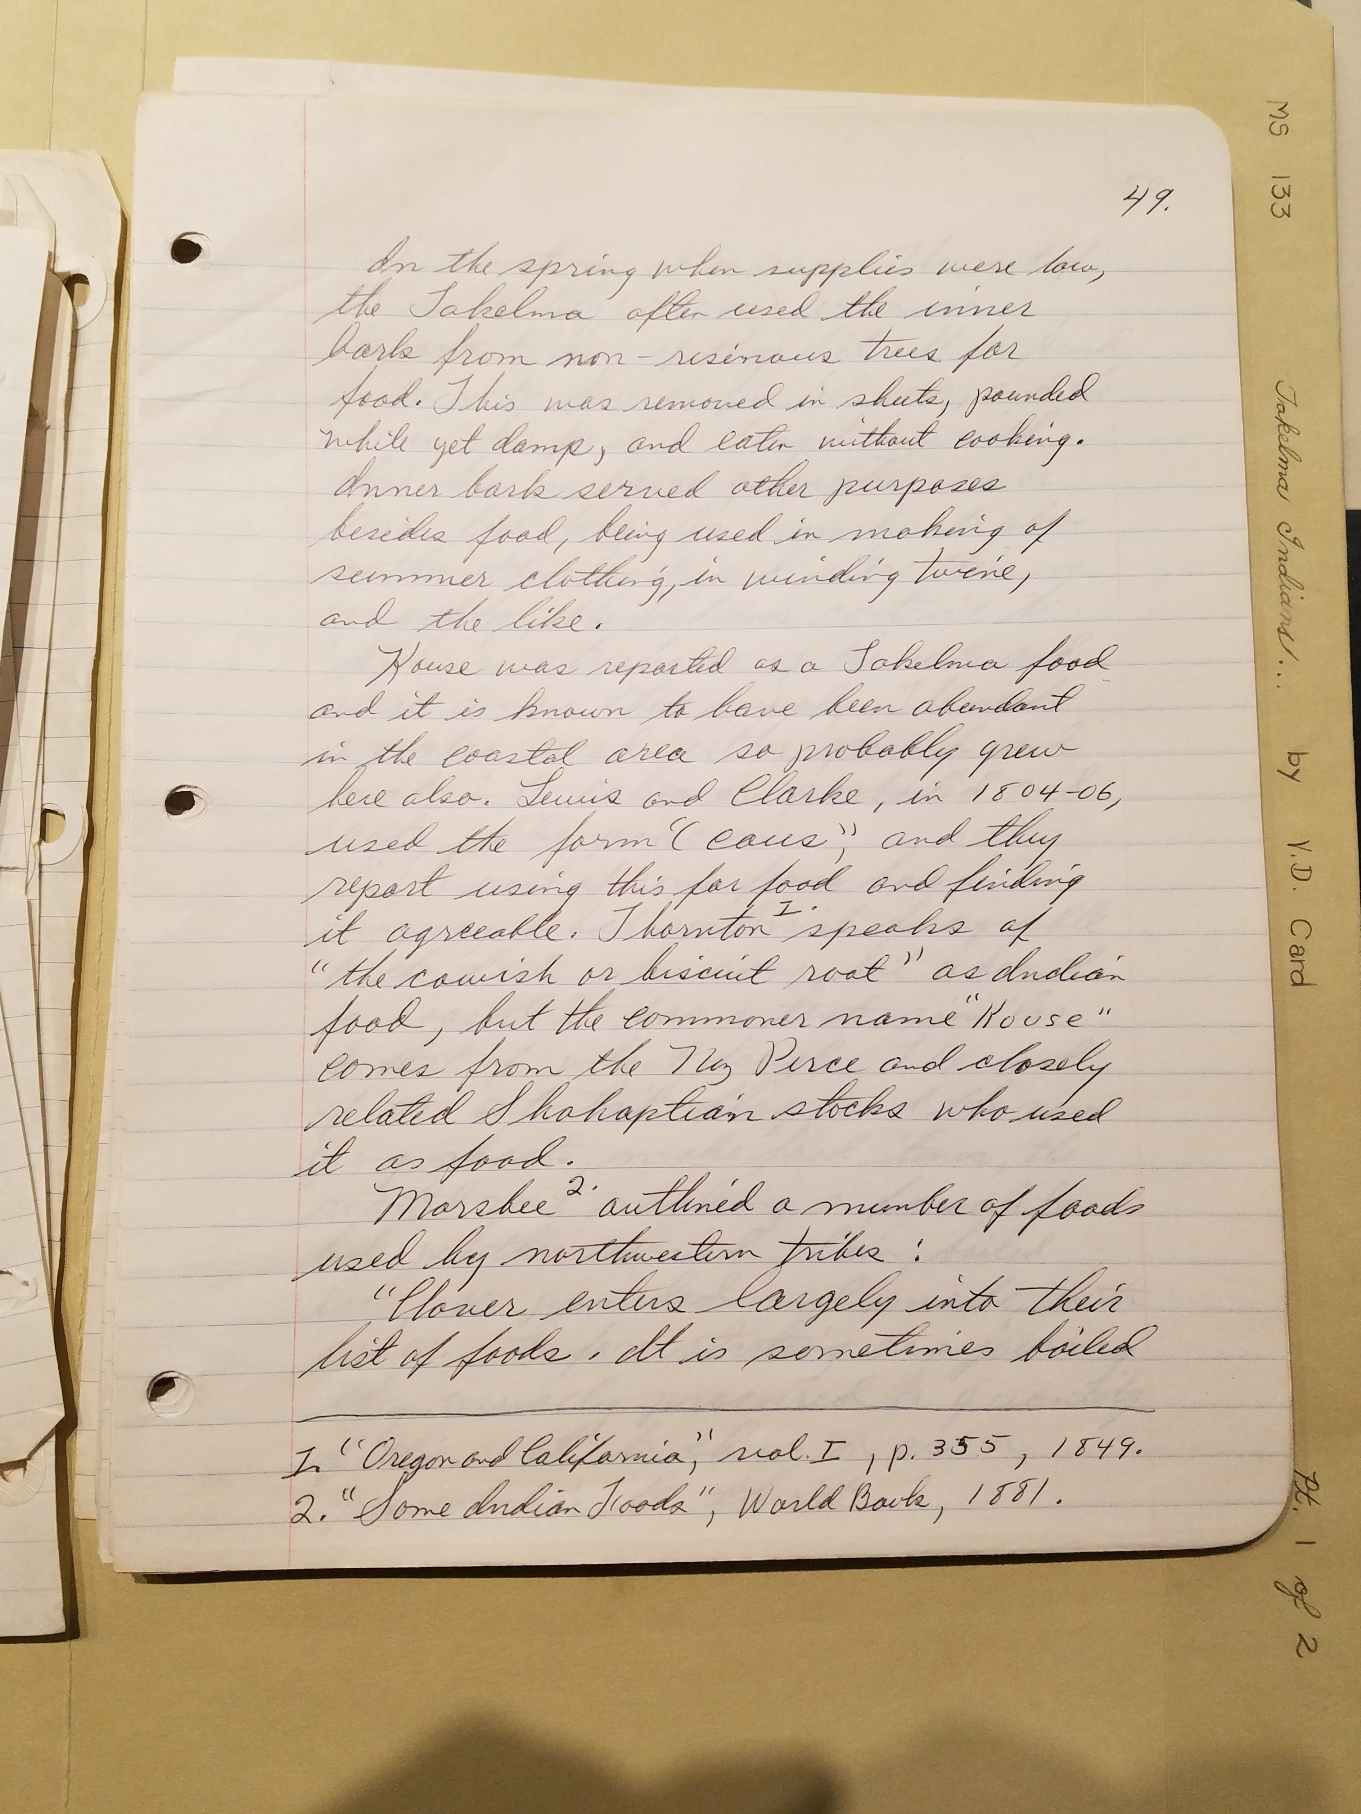 49.
In the spring when supplies were low,
the Takelma often used the inner
bark from non-resinous trees for
food. This was removed in sheets, pounded
while yet damp, and eaten without cooking.
Inner bark served other purposes
besides food, being used in making of
summer clothing, in winding twine,
and the like.
Kouse was reported as a Takelma food
and it is known to have been abundant
in the coastal area so probably grew
here also. Lewis and Clarke, in 1804-06,
used the form "(cous", and they
report using this for food and finding
it agreeable. Thornton I. speaks of
"the cowish or biscuit root" as Indian
food, but the commoner name "Kouse"
comes from the Nez Perce and closely
related Shahaptian stocks who used
it as food.
Morsbee 2. outlined a number of foods
used by northwestern tribes:
"Clover enters largely into their
list of foods. It is sometimes boiled
I. "Oregon and California," vol. I, p. 355, 1849.
2. "Some Indian Foods", World Book, 1881.
MS 133 Takelma Indians... by V.D. Card Pt. 1 of 2